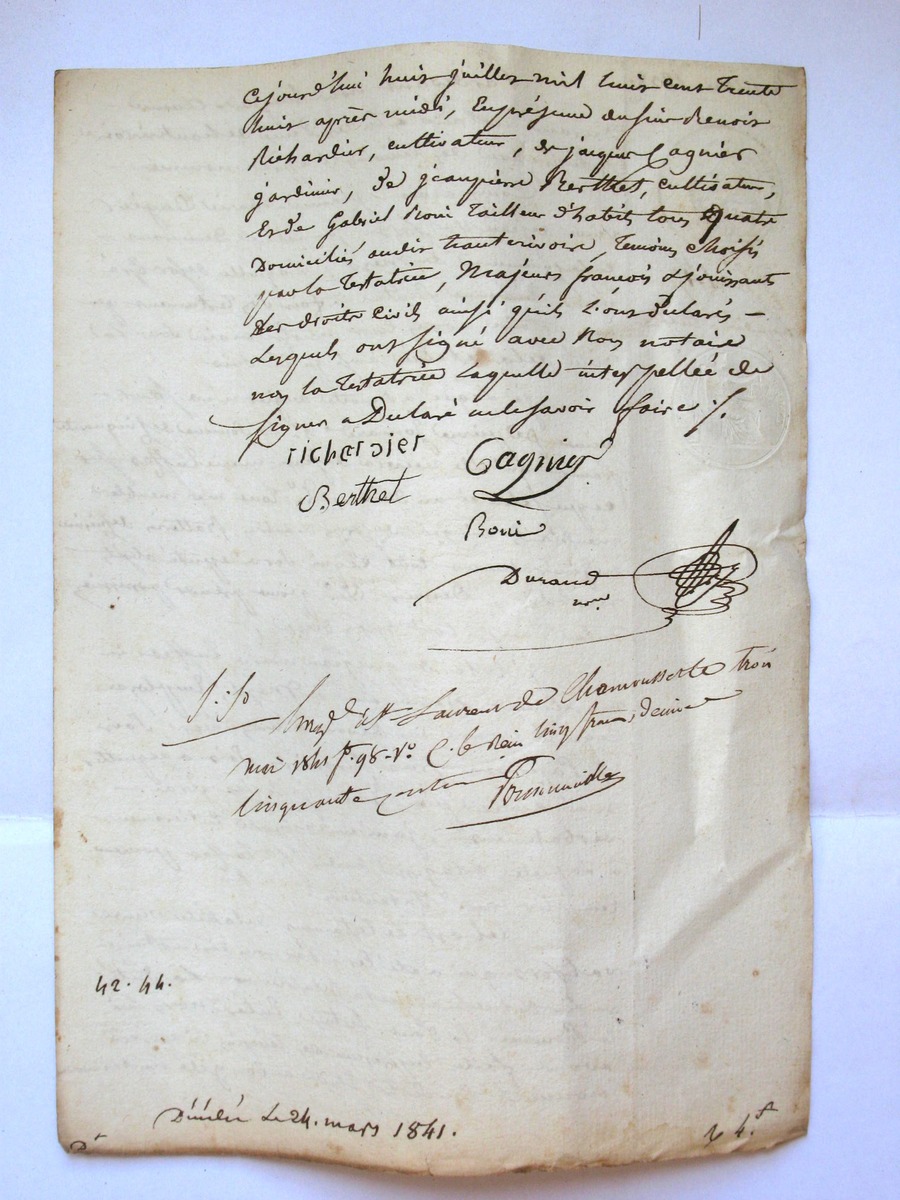 Cejourd'hui huit juillet mil huit cent trente
huit après midi, En présence du sieur Benoit
Richardier, cultivateur, de jacque Cagnier
jardinier, de jeanpierre Berthet, cultivateur,
Et de Gabriel Boni Tailleur d'habits tous Quatre
Domiciliés audit hauterivoire, Temoins Choisis
par la Testatrice, Majeurs francois & jouissants
Des droits Civils ainsi qu'ils l'ont Déclarés —
Lesquels ont signé avec Nous notaire
non la Testatrice Laquelle interpellée de
signer a Déclaré ne le savoir faire ./.
richardier Cagnier
Berthet
Boni
Durand
nore
Enregé à St Laurent de Chamousset le trois
mai 1841 fo. 98. Vo C. Reçu Cinq francs, decime
Cinquante centimes
42. 44.
Décédée Le 24. mars 1841.